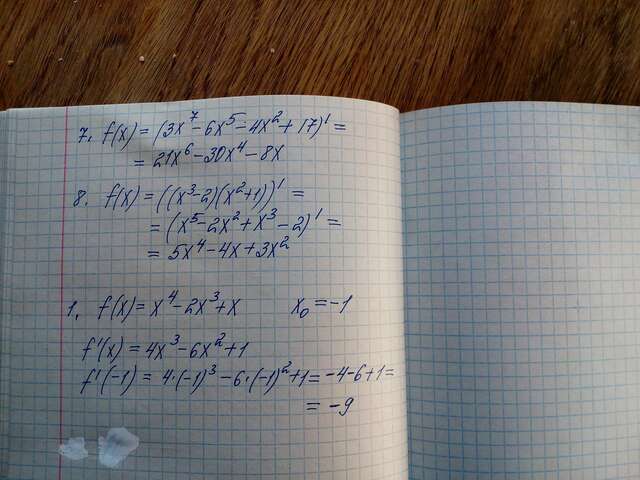 7. f(x) = (3x⁷ - 6x⁵ - 4x² + 17)' =
= 21x⁶ - 30x⁴ - 8x
8. f(x) = ((x³-2)(x²+1))' =
= (x⁵ - 2x² + x³ - 2)' =
= 5x⁴ - 4x + 3x²
1. f(x) = x⁴ - 2x³ + x x₀ = -1
f'(x) = 4x³ - 6x² + 1
f'(-1) = 4·(-1)³ - 6·(-1)² + 1 = -4-6+1 =
= -9